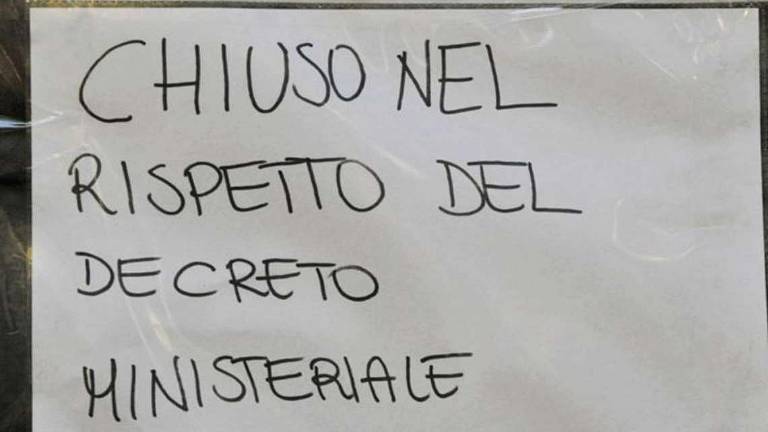 CHIUSO NEL
RISPETTO DEL
DECRETO
MINISTERIALE